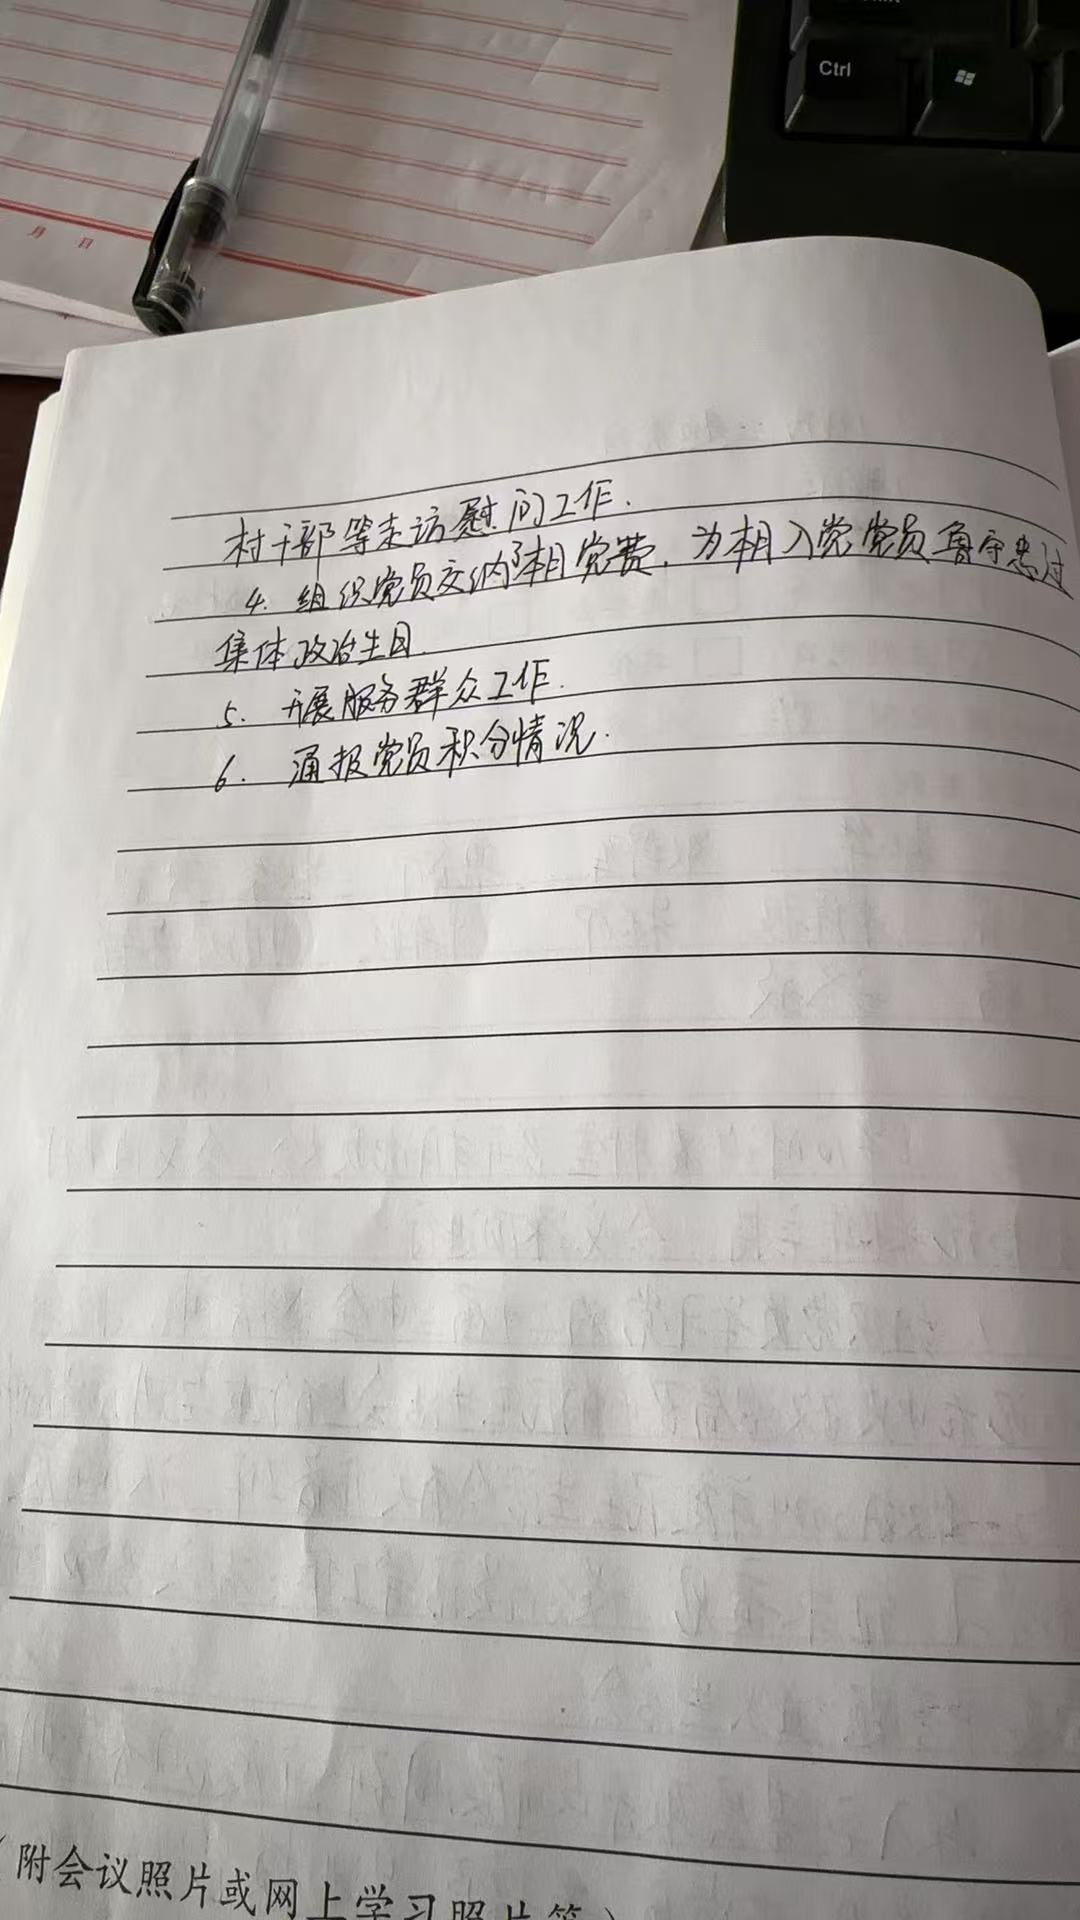 Ctrl
月 日
村干部等走访慰问工作.
4. 组织党员交纳本月党费, 为本月入党党员鲁守忠过
集体政治生日.
5. 开展服务群众工作.
6. 通报党员积分情况.
(附会议照片或网上学习照片等)